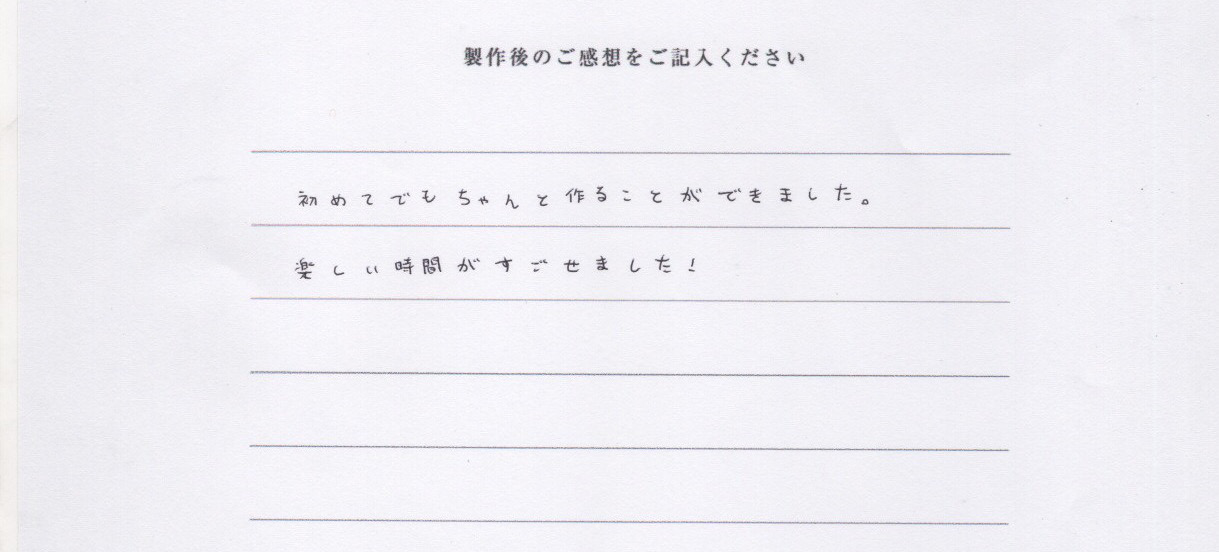 製作後のご感想をご記入ください
初めてでもちゃんと作ることができました。
楽しい時間がすごせました!